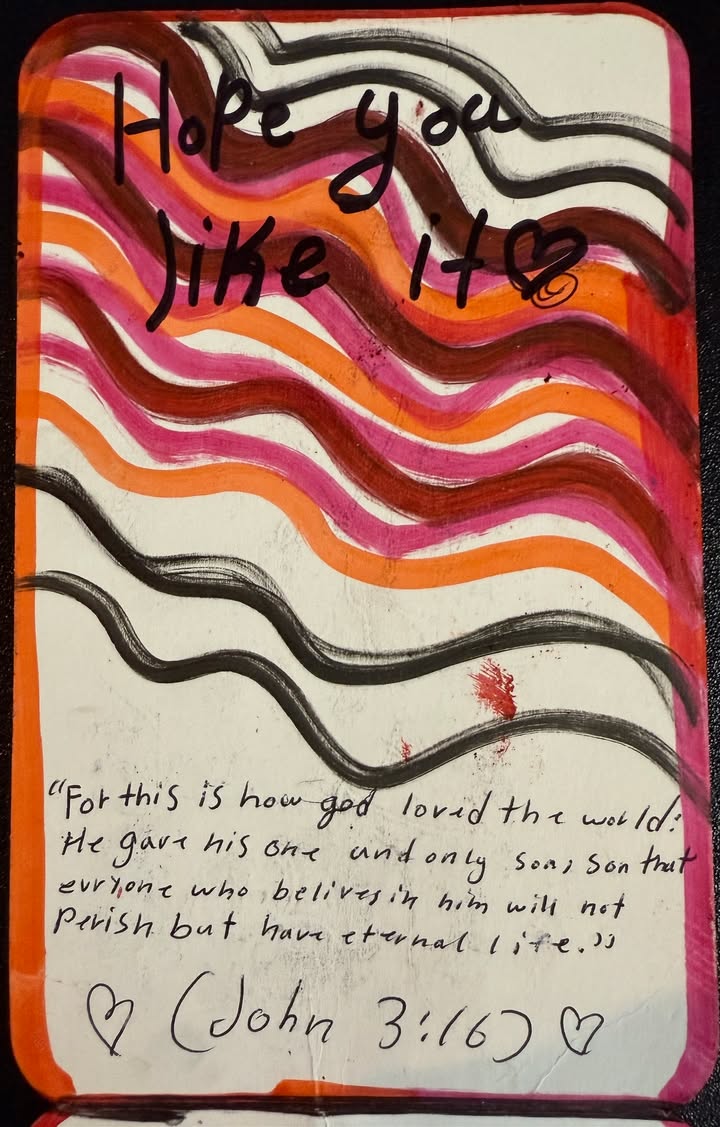 Hope you
like it♡
“For this is how god loved the world:
He gave his one and only son, son that
evryone who belives in him will not
perish but have eternal life.”
♡ (John 3:16) ♡